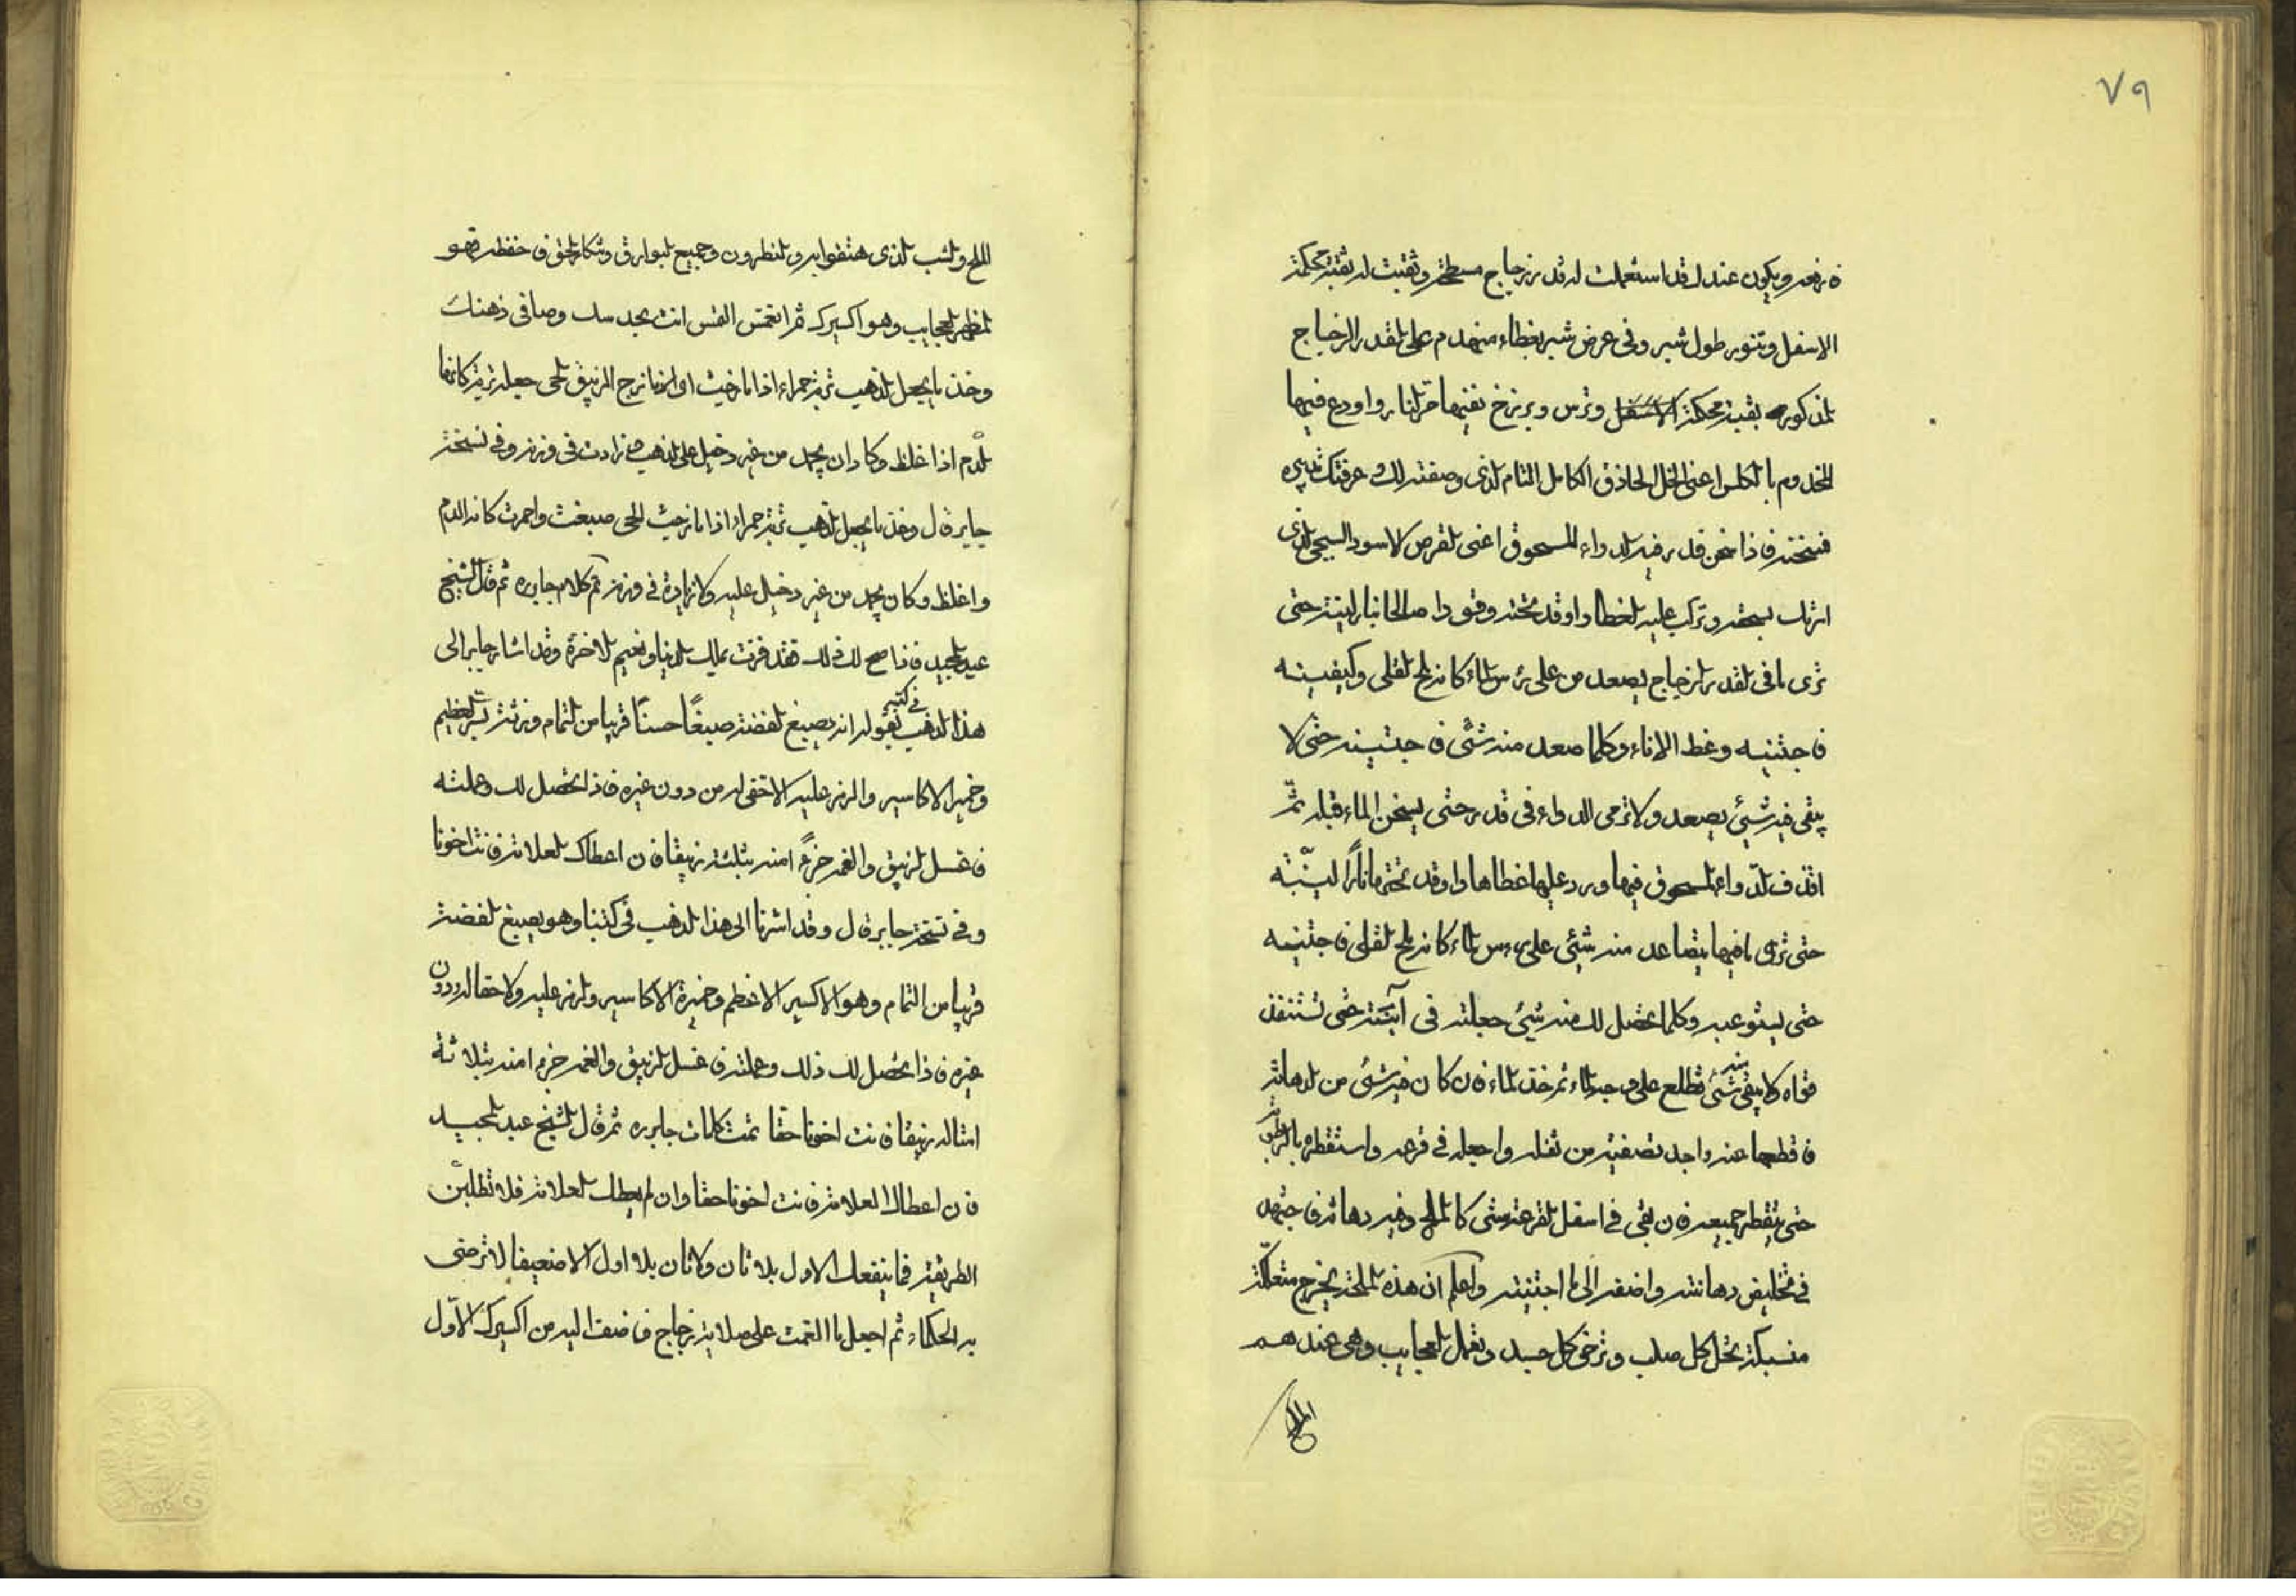 ٧٩
فارفعه ويكون عندك قد استعملت له قدر زجاج مسطحة وثقبت له ثقبة محكمة
الاسفل وتنور طول شبر وفى عرض شبر بغطاء مهندم على القدر الزجاج
المذكوره بثقبة محكمة الاسفل وترس وبربخ نفيها حر النار واودع فيها
المخدوم بالكلس اعنى الخل الحاذق الكامل التام الذى وصفته لك وعرفتك تدبيره
فسخنه فاذا سخن قدر فيه الدواء المسحوق اعنى القرص الاسود السيحى الذى
امرتك بسحقه وتركب عليه الغطا واوقد تحته وقودا صالحا نارا لينة حتى
ترى ما فى القدر الزجاج يصعد من على رءس الماء كانه ملح القلى وكيفيته
فاجتنيه وغط الاناء وكلما صعد منه شىء فاجتنيه حتى لا
يبقى فيه شيئ يصعد ولا ترمى الدواء فى قدر حتى يسخن الماء قبله ثمّ
اقذف الدّواء المسحوق فيها ورد عليها غطاها واوقد تحتها نارًا لينّة
حتى ترى ما فيها يتصاعد منه شيئ على رءس الماء كانه ملح القلى فاجتنيه
حتى يستوعبه وكلما تحصل لك منه شيئ جعلته فى آنية حتى تستنفذ
قواه ولا يبقى منه شئ تطلع على وجه الماء ثم خذ الماء فان كان فيه شئ من الدهانة
فاقطعها عنه واجد تصفيته من ثفله واجعله فى قرعة واستقطره بالرطوبة
حتى يتقطر جميعه فان بقى فى اسفل القرعة شى كالملح وفيه دهانة فاجتهد
فى تخليص دهانته واضفه الى ما اجتنيته واعلم ان هذه الملحة يخرج متعلكة
منسبكة تحل كل صلب وترخى كل جسد وتعمل العجايب وهى عندهم
الملح
الملح والشب الذى هتفوا به والنطرون وجميع البوارق وتنكار الحق فاحفظه فهو
المظهر العجايب وهو اكسيرك ثم انغمس النفس انت بجد سك وصافى ذهنك
وخذ ما يجعل الذهب تربة حمراء اذا ما رخيت او الزمانج الزيبق الحى جعله تربة كانها
الدّم اذا غلظ وكاد ان يجمد من غير دخيل على الذهب ما زادت فى وزنه وفى نسخة
جابر قال وخذ ما يجعل الذهب تربة حمراء اذا مازجت الحى صبغت واحمرت كانه الدم
واغلظ وكان يجمد من غير دخيل عليه ولا زيادة فى وزنه تم كلام جابره ثم قال الشيخ
عبد المجيد فاذا صح لك ذلك فقد فزت بملك الدنيا ونعيم الاخرة وقد اشار جابر الى
هذا الذهب فى كتبه بقوله انه يصبغ الفضة صبغًا حسنًا قريبا من التمام وزنته السر العظيم
وخمير الاكاسير والرمز عليه الاحقى له من دون غيره فاذا تحصل لك وعملته
فاغسل الزيبق والغمه جزءًا منه بثلثه زيبقا فان اعطاك العلامة فانت اخونا
وفى نسخة جابر قال وقد اشرنا الى هذا الذهب فى كتبنا وهو يصبغ الفضة
قريبا من التمام وهو الاكسير الاعظم وخميرة الاكاسير والرمز عليه ولاحقا له دون
غيره فاذا تحصل لك ذلك وعملته فاغسل الزيبق والغمه جزءا منه بثلاثة
امثاله زيبقا فانت اخونا حقا تمت كلمات جابره ثم قال الشيخ عبد المجيد
فان اعطاك العلامة فانت اخونا حقا وان لم يعطك العلامة فلا تطلبّن
الطريقة فما ينفعك الاول بلا ثان ولا ثان بلا اول الا ضعيفا لا ترضى
به الحكماء ثم اجعل ما الغمت على صلاية زجاج فاضف اليه من اكسيرك الاوّل